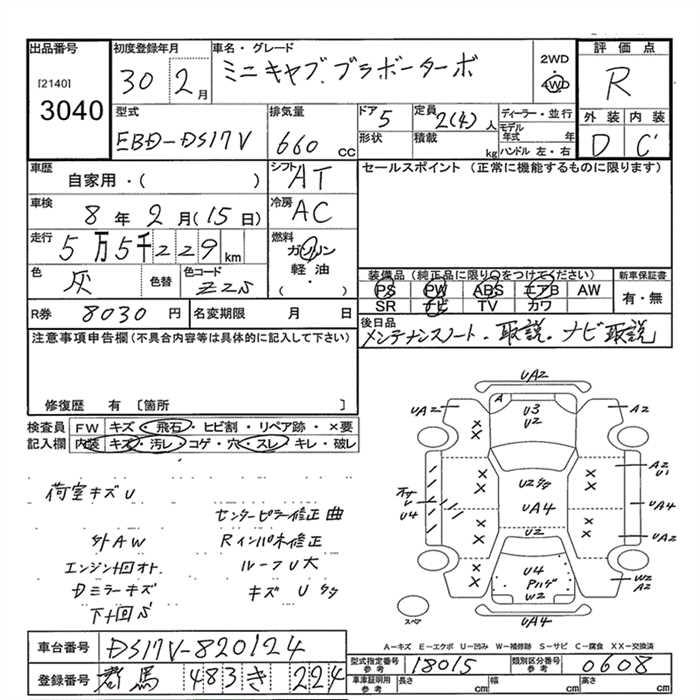 出品番号
[2140]
3040
初度登録年月
30 2月
車名・グレード
ミニキャブ.ブラボーターボ
2WD
4WD
評価点
R
外装 内装
D C
型式
EBD-DS17V
排気量
660 cc
ドア 5
形状
定員 2(4) 人
積載 kg
ディーラー・並行
モデル年式 年
ハンドル 左・右
車歴
自家用・( )
シフト AT
セールスポイント (正常に機能するものに限ります)
車検
8年2月(15日)
冷房 AC
走行
5万5千229km
燃料
ガソリン
軽・油
( ・ )
色 灰
色替
色コード
装備品(純正品に限り○をつけてください)
新車保証書
PS PW ABS エアB AW
SR ナビ TV カワ
有・無
R券 8030円
名変期限 月 日
後日品
メンテナンスノート・取説・ナビ取説
注意事項申告欄(不具合内容等は具体的に記入して下さい)
修復歴 有 〔箇所 〕
検査員記入欄
FW キズ・飛石・ヒビ割・リペア跡・×要
内装 キズ・汚レ・コゲ・穴・スレ・キレ・破レ
荷室キズU
センターピラー修正曲
外AW
Rインパネ修正
エンジン下回オト.
ルーフU大
Dミラーキズ
キズU
下廻回S
UA2
A
U3
U2
UA2
A2
A2
U1
U2
UA4
UA4
U4
U2
U4
Pハゲ
W2
W2
A2
UA4
スペア
A-キズ E-エクボ U-凹み W-補修跡 S-サビ C-腐食 XX-交換済
車台番号 DS17V-820124
型式指定番号 参考 18015
類別区分番号 参考 0608
登録番号 群馬 483 き 224
車庫証明用 参考
長さ cm
幅 cm
高さ cm